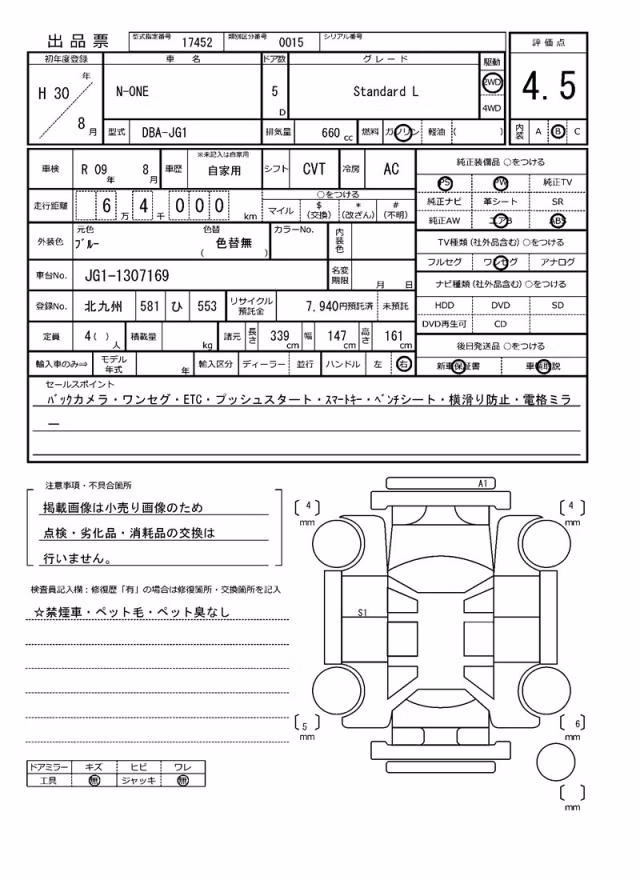 出品票 型式指定番号 17452 類別区分番号 0015 シリアル番号
初年度登録 車名 ドア数 グレード 駆動 評価点
H 30 年 8 月 N-ONE 5 D Standard L 2WD 4WD 4.5
型式 DBA-JG1 排気量 660 cc 燃料 ガソリン 軽油 ( ) 内装 A B C
車検 R 09 年 8 月 車歴 ※未記入は自家用 自家用 シフト CVT 冷房 AC
純正装備品 ○をつける
PS PW 純正TV
純正ナビ 革シート SR
純正AW エアB ABS
走行距離 6 万 4 千 0 0 0 km
○をつける
マイル $ (交換) * (改ざん) # (不明)
外装色 元色 ブルー 色替 色替無 ( ) カラーNo. 内装色
TV種類 (社外品含む) ○をつける
フルセグ ワンセグ アナログ
車台No. JG1-1307169 名変期限 月 日
ナビ種類 (社外品含む) ○をつける
HDD DVD SD
DVD再生可 CD
登録No. 北九州 581 ひ 553 リサイクル預託金 7,940円預託済 未預託
定員 4( ) 人 積載量 kg 諸元 長さ 339 cm 幅 147 cm 高さ 161 cm
後日発送品 ○をつける
新車保証書 車輌取説
輸入車のみ⇒ モデル年式 年 輸入区分 ディーラー 並行 ハンドル 左 右
セールスポイント
バックカメラ・ワンセグ・ETC・プッシュスタート・スマートキー・ベンチシート・横滑り防止・電格ミラ
ー
注意事項・不具合箇所
掲載画像は小売り画像のため
点検・劣化品・消耗品の交換は
行いません。
検査員記入欄：修復歴「有」の場合は修復箇所・交換箇所を記入
☆禁煙車・ペット毛・ペット臭なし
A1
4 mm
4 mm
S1
5 mm
6 mm
mm
ドアミラー キズ ヒビ ワレ
工具 無 ジャッキ 無